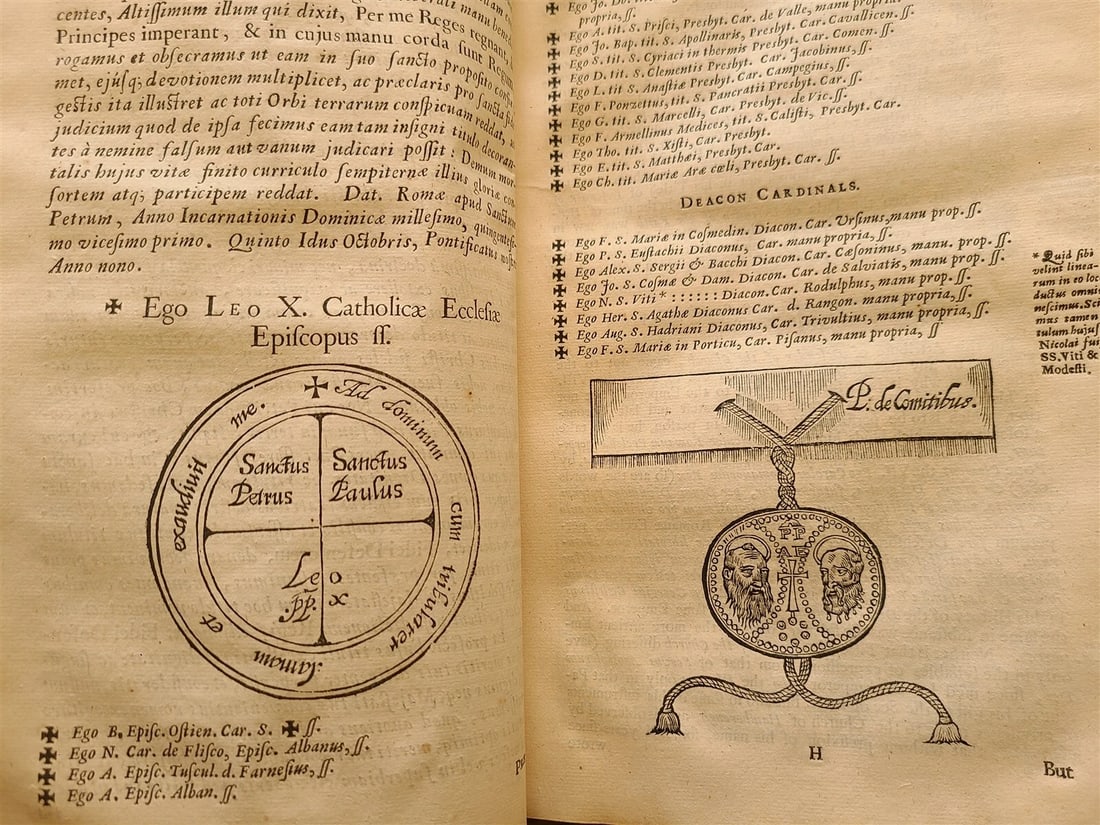 centes, Altissimum illum qui dixit, Per me Reges regnant,
Principes imperant, & in cujus manu corda sunt Regum
rogamus et obsecramus ut eam in suo sancto proposito
met, ejusq; devotionem multiplicet, ac præclaris pro sancta
gestis ita illustret ac toti Orbi terrarum conspicuam reddat,
judicium quod de ipsa fecimus eam tam insigni titulo decoran-
tes à nemine falsum aut vanum judicari possit: Demum mor-
talis hujus vitæ finito curriculo sempiternæ illius gloriæ con-
sortem atq; participem reddat. Dat. Romæ apud Sanctum
Petrum, Anno Incarnationis Dominicæ millesimo, quingentesi-
mo vicesimo primo. Quinto Idus Octobris, Pontificatus
Anno nono.
✠ Ego LEO X. Catholicæ Ecclesiæ
Episcopus ſſ.
✠ Ad dominum cum tribularer clamavi et exaudivit me.
Sanctus Petrus
Sanctus Paulus
Leo
pp. x
✠ Ego B. Episc. Ostien. Car. S. ✠ ſſ.
✠ Ego N. Car. de Flisco, Episc. Albanus, ſſ.
✠ Ego A. Episc. Tuscul. d. Farnesius, ſſ.
✠ Ego A. Episc. Alban. ſſ.
propria, ſſ.
✠ Ego A. tit. S. Prisci, Presbyt. Car. de Valle, manu propria
✠ Ego Jo. Bap. tit. S. Apollinaris, Presbyt. Car. Cavallicen. ſſ.
✠ Ego S. tit. S. Cyriaci in thermis Presbyt. Car. Comen. ſſ.
✠ Ego D. tit. S. Clementis Presbyt. Car. Jacobinus, ſſ.
✠ Ego L. tit S. Anastiæ Presbyt. Car. Campegius, ſſ.
✠ Ego F. Ponzettus, tit. S. Pancratii Presbyt. Car. ſſ.
✠ Ego G. tit. S. Marcelli, Car. Presbyt. de Vic. ſſ.
✠ Ego F. Armellinus Medices, tit. S. Calisti, Presbyt. Car.
✠ Ego Tho. tit. S. Xisti, Car. Presbyt.
✠ Ego E. tit. S. Matthæi, Presbyt. Car.
✠ Ego Ch. tit. Mariæ Aræ cœli, Presbyt. Car. ſſ.
DEACON CARDINALS.
✠ Ego F. S. Mariæ in Cosmedin. Diacon. Car. Ursinus, manu prop. ſſ.
✠ Ego P. S. Eustachii Diaconus, Car. manu propria, ſſ.
✠ Ego Alex. S. Sergii & Bacchi Diacon. Car. Cæsoninus, manu. prop. ſſ.
✠ Ego Jo. S. Cosmæ & Dam. Diacon. Car. de Salviatis, manu prop. ſſ.
✠ Ego N. S. Viti * : : : : : : Diacon. Car. Rodulphus, manu prop. ſſ.
✠ Ego Her. S. Agathæ Diaconus Car. d. Rangon. manu propria, ſſ.
✠ Ego Aug. S. Hadriani Diaconus, Car. Trivultius, manu propria, ſſ.
✠ Ego F. S. Mariæ in Porticu, Car. Pisanus, manu propria, ſſ
* Quid sibi
velint linea-
rum in eo loc
ductus omni
nescimus. Sci
mus tamen
tulum hujus
Nicolai fui
SS. Viti &
Modesti.
P. de Comitibus.
H
But